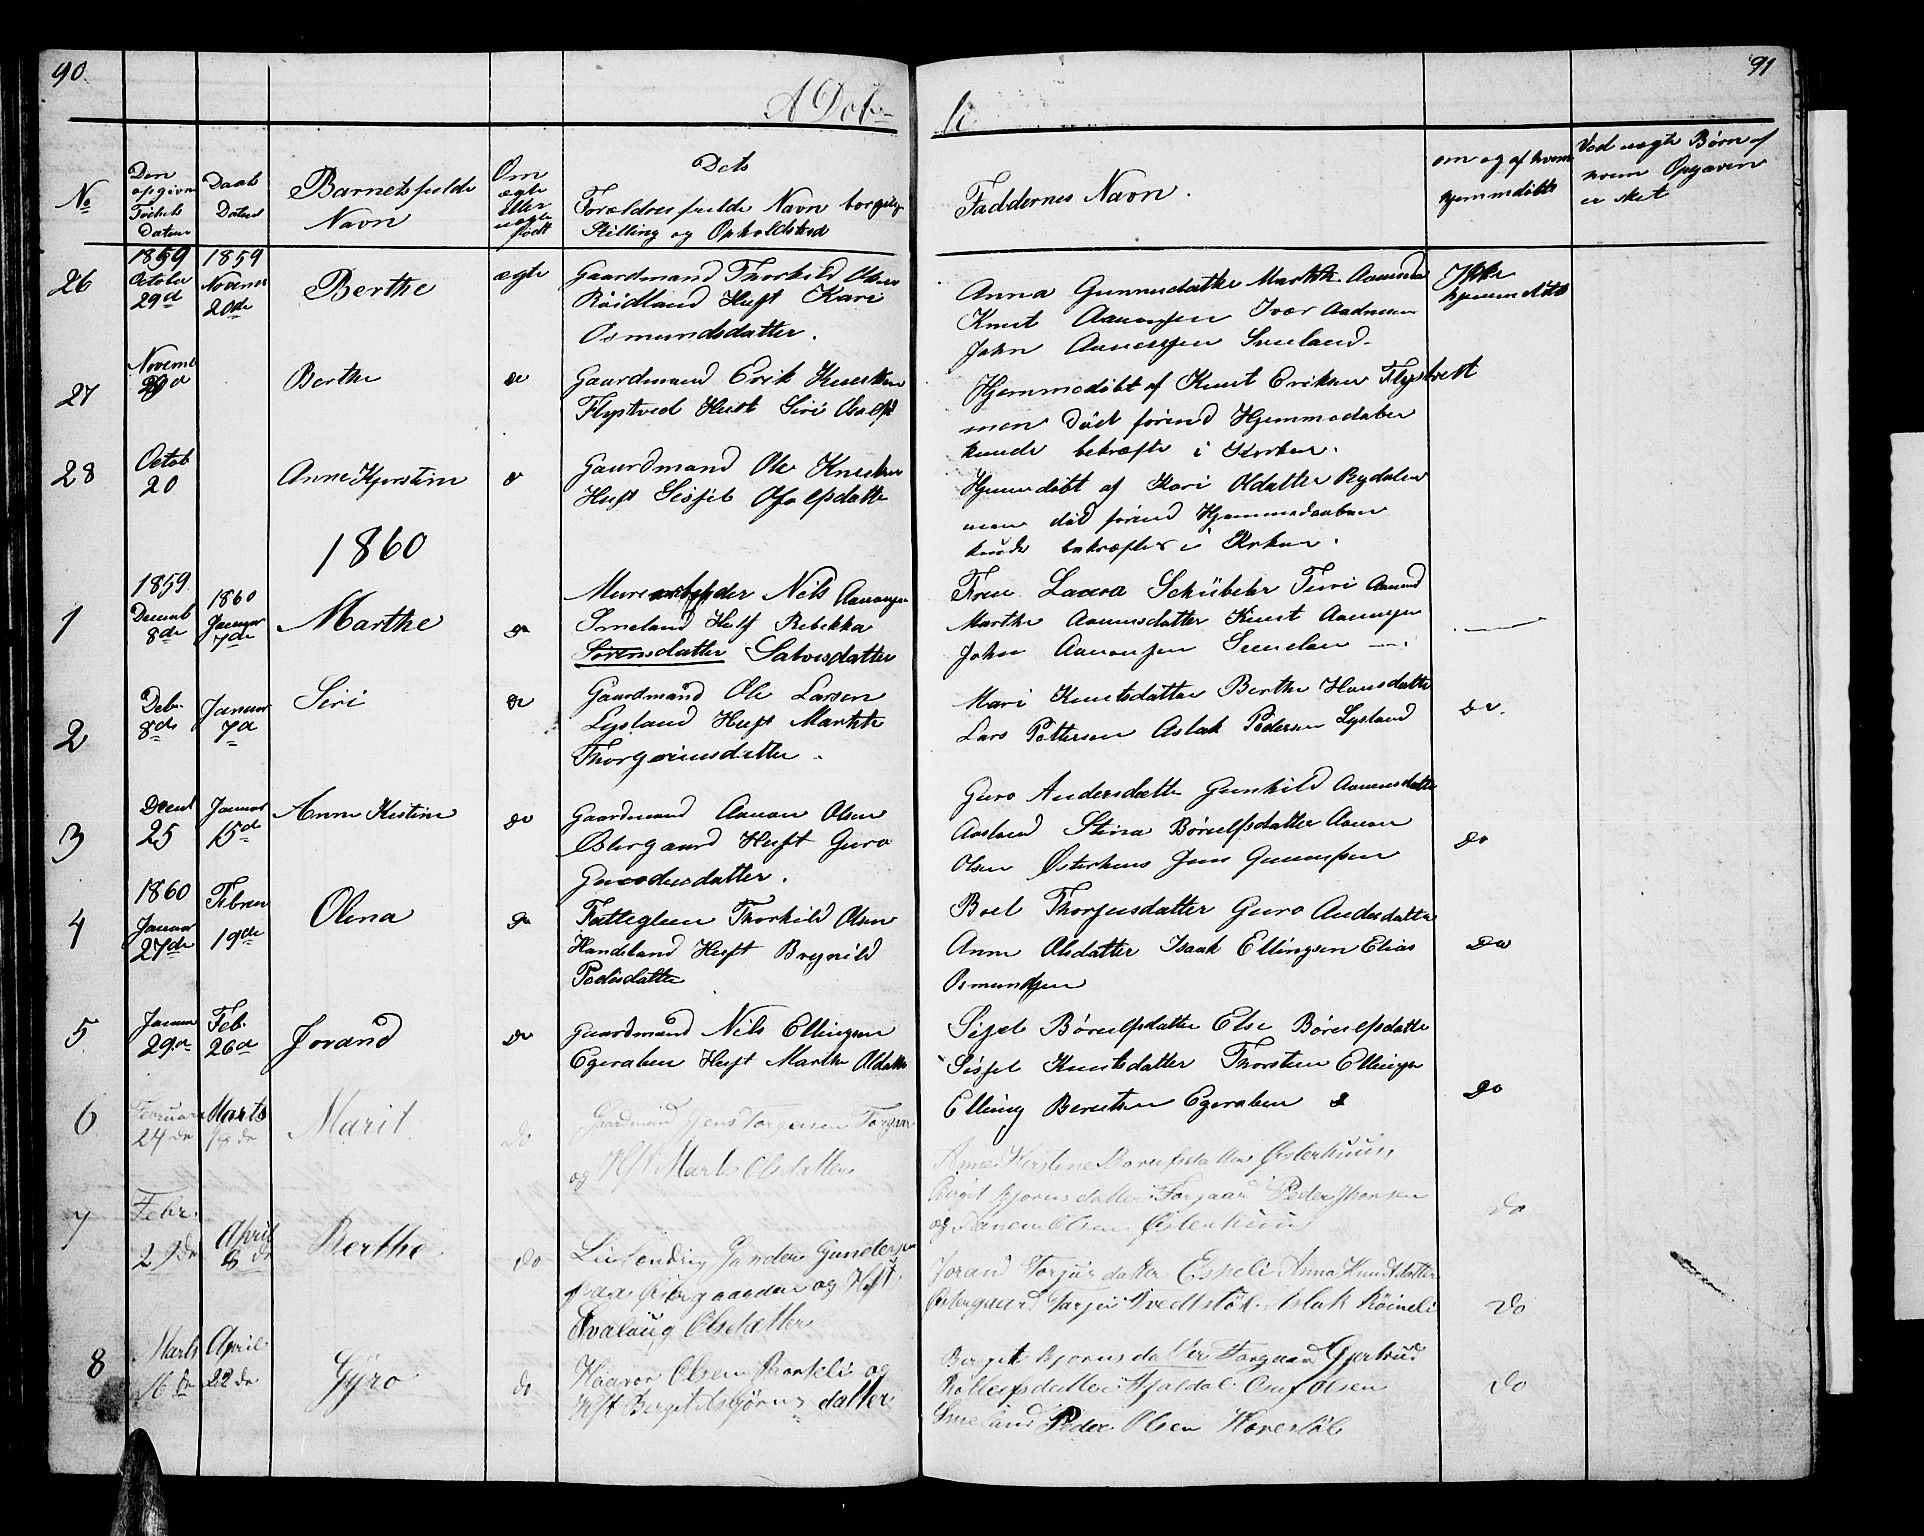 90
91
A Døbte
No
Den opgivne Fødsels Datum
Daabs Datum
Barnets fulde Navn
Om ægte eller uægte født
Dets Forældres fulde Navn borgerlige Stilling og Opholdsted
Faddernes Navn.
om og af hvem hjemmedøbt
Ved uægte Børn af hvem Opgaven er sket
26
1859 October 29de
1859 November 20de
Berthe
ægte
Gaardmand Thorkild Olsen
Røidland Hust Kari
Osmundsdatter.
Anna Gunnusdatter Marthe
Knut Aanonsen Ivar
John Aanonsen Smeland
Ikke hjemmedøbt
27
Novemb 29d
Berthe
do
Gaardmand Erik Knutsen
Flystved Hust Siri
Hjemmedøbt af Knut Eriksen Flystvett
men død førend Hjemmedaaben
kunde bekræfte i Kirken.
28
Octob 20
Anne Kjerstine
do
Gaardmand Ole Knutsen
Hust Sissel
Hjemmedøbt af Kari Olsdatter Rydalen
men død førend Hjemmedaaben
kunde bekræftes i Kirken.
1860
1
1859 Decemb 8de
1860 Januar 7de
Marthe
do
Murearbeider Nils Aanonsen
Smeland Hust Rebekka
Sørensdatter Salvesdatter
Frue Laura Schübeler Turi
Marthe Aanonsdatter Knut Aanonsen
John Aanonsen Smeland
2
Debr. 8de
Januar 7d
Siri
do
Gaardmand Ole Larsen
Lysland Hust Marthe
Thorgrimsdatter.
Mari Knutsdatter Berthe Hansdatter
Lars Pettersen Aslak Pedersen Lysland
do.
3
Decmb 25
Januar 15de
Anne Kistine
do
Gaardmand Aanon Olsen
Østergaard Hust Guro
Guro Andersdatter Gunhild Aanonsdatter
Stina Børulfsdatter Aanon
Olsen Østerhuus Jens Gunnufsen
do
4
1860 Januar 27de
Februar 19de
Olena
do
Fattiglem Thorkild Olsen
Handeland Hust Brynild
Pedersdatter
Boel Thorjusdatter Guro Andersdatter
Anne Olsdatter Isaak Ellingsen Elias
Osmundsen
do
5
Januar 29de
Feb. 26d
Jorand
do
Gaardmand Nils Ellingsen
Egeraben Hust Marthe Olsdatter
Sissel Børulfsdatter Else Børulfsdatter
Sissel Knutsdatter Thorsten Ellingsen
Elling Berntsen Egeraben
do
6
Februar 24de
Marts 18de
Marit
do
Gaardmand Jens Torgersen Forgaar
og Hst Marte Olsdatter
Anne Kirstine Børufsdatter Østerhuus,
Bergit Bjørnsdatter Forgaard Peder Jhonsen
og Olsen Østerhuus
do
7
Febr. 29de
April 8de
Berthe
do
Leilending Gunder Gundersen
paa Østergaarden og Hst.
Svalaug Olsdatter
Jorand Torjusdatter Espeli Anna Knudtdatter
Østergaard Tarjei Tvedtstøl Aslak Røineli
do
8
Marts 16de
April 22de
Gyro
do
Haavor Olsen og
Hst Berget Asbjørnsdatter
Berget Bjørnsdatter Forgaar Gjertrud
Rølleifsdatter Fjaldal Osuf Olsen
Smeland Peder Olsen Haverstøl